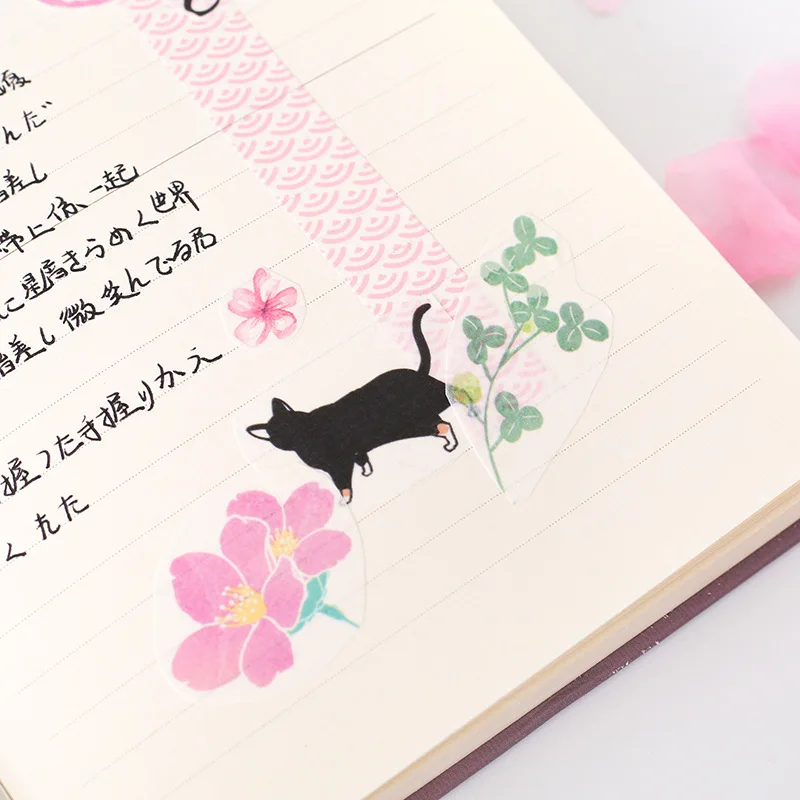 んだ
差し
帯上你、一起
に星屑きらめく世界
指差し微笑んでる君
握った手握りかえ
くれた